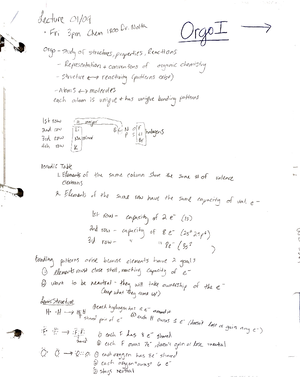 Lecture 09/09
Orgo I
- Fri 3pm Chem 1800 Dr.
Orgo - study of structures, properties, Reactions
- Representation + conventions of organic chemistry
- Structure ↔ reactivity (patterns exist)
- Atoms ↔ molecules
each atom is unique + has unique bonding patterns
1st row
2nd row
3rd row
4th row
halogens
Periodic Table
1. Elements of the same column share the same # of valence
electrons
2. Elements of the same row have the same capacity of val e⁻
1st row - capacity of 2 e⁻ (1s)
2nd row - capacity of 8 e⁻ (2s² 2p⁶)
3rd row - " " 8e⁻ (3s²
bonding patterns arise because elements have 2 goals
① elements want close shell, reaching capacity of e⁻
② want to be neutral - they will take ownership of the e⁻
(keep what they came w/)
Lewis Structure
H· ·H → H:H
① each hydrogen has 2 e⁻ around it
shared pair of e⁻
② each H owns 1 e⁻ (doesn't lose or gain any e⁻)
① each F has 8 e⁻ shared
② each F owns 7e⁻ doesn't gain or lose, neutral
① each oxygen has 8e⁻ shared
② each oxygen owns 6 e⁻
③ stays neutral